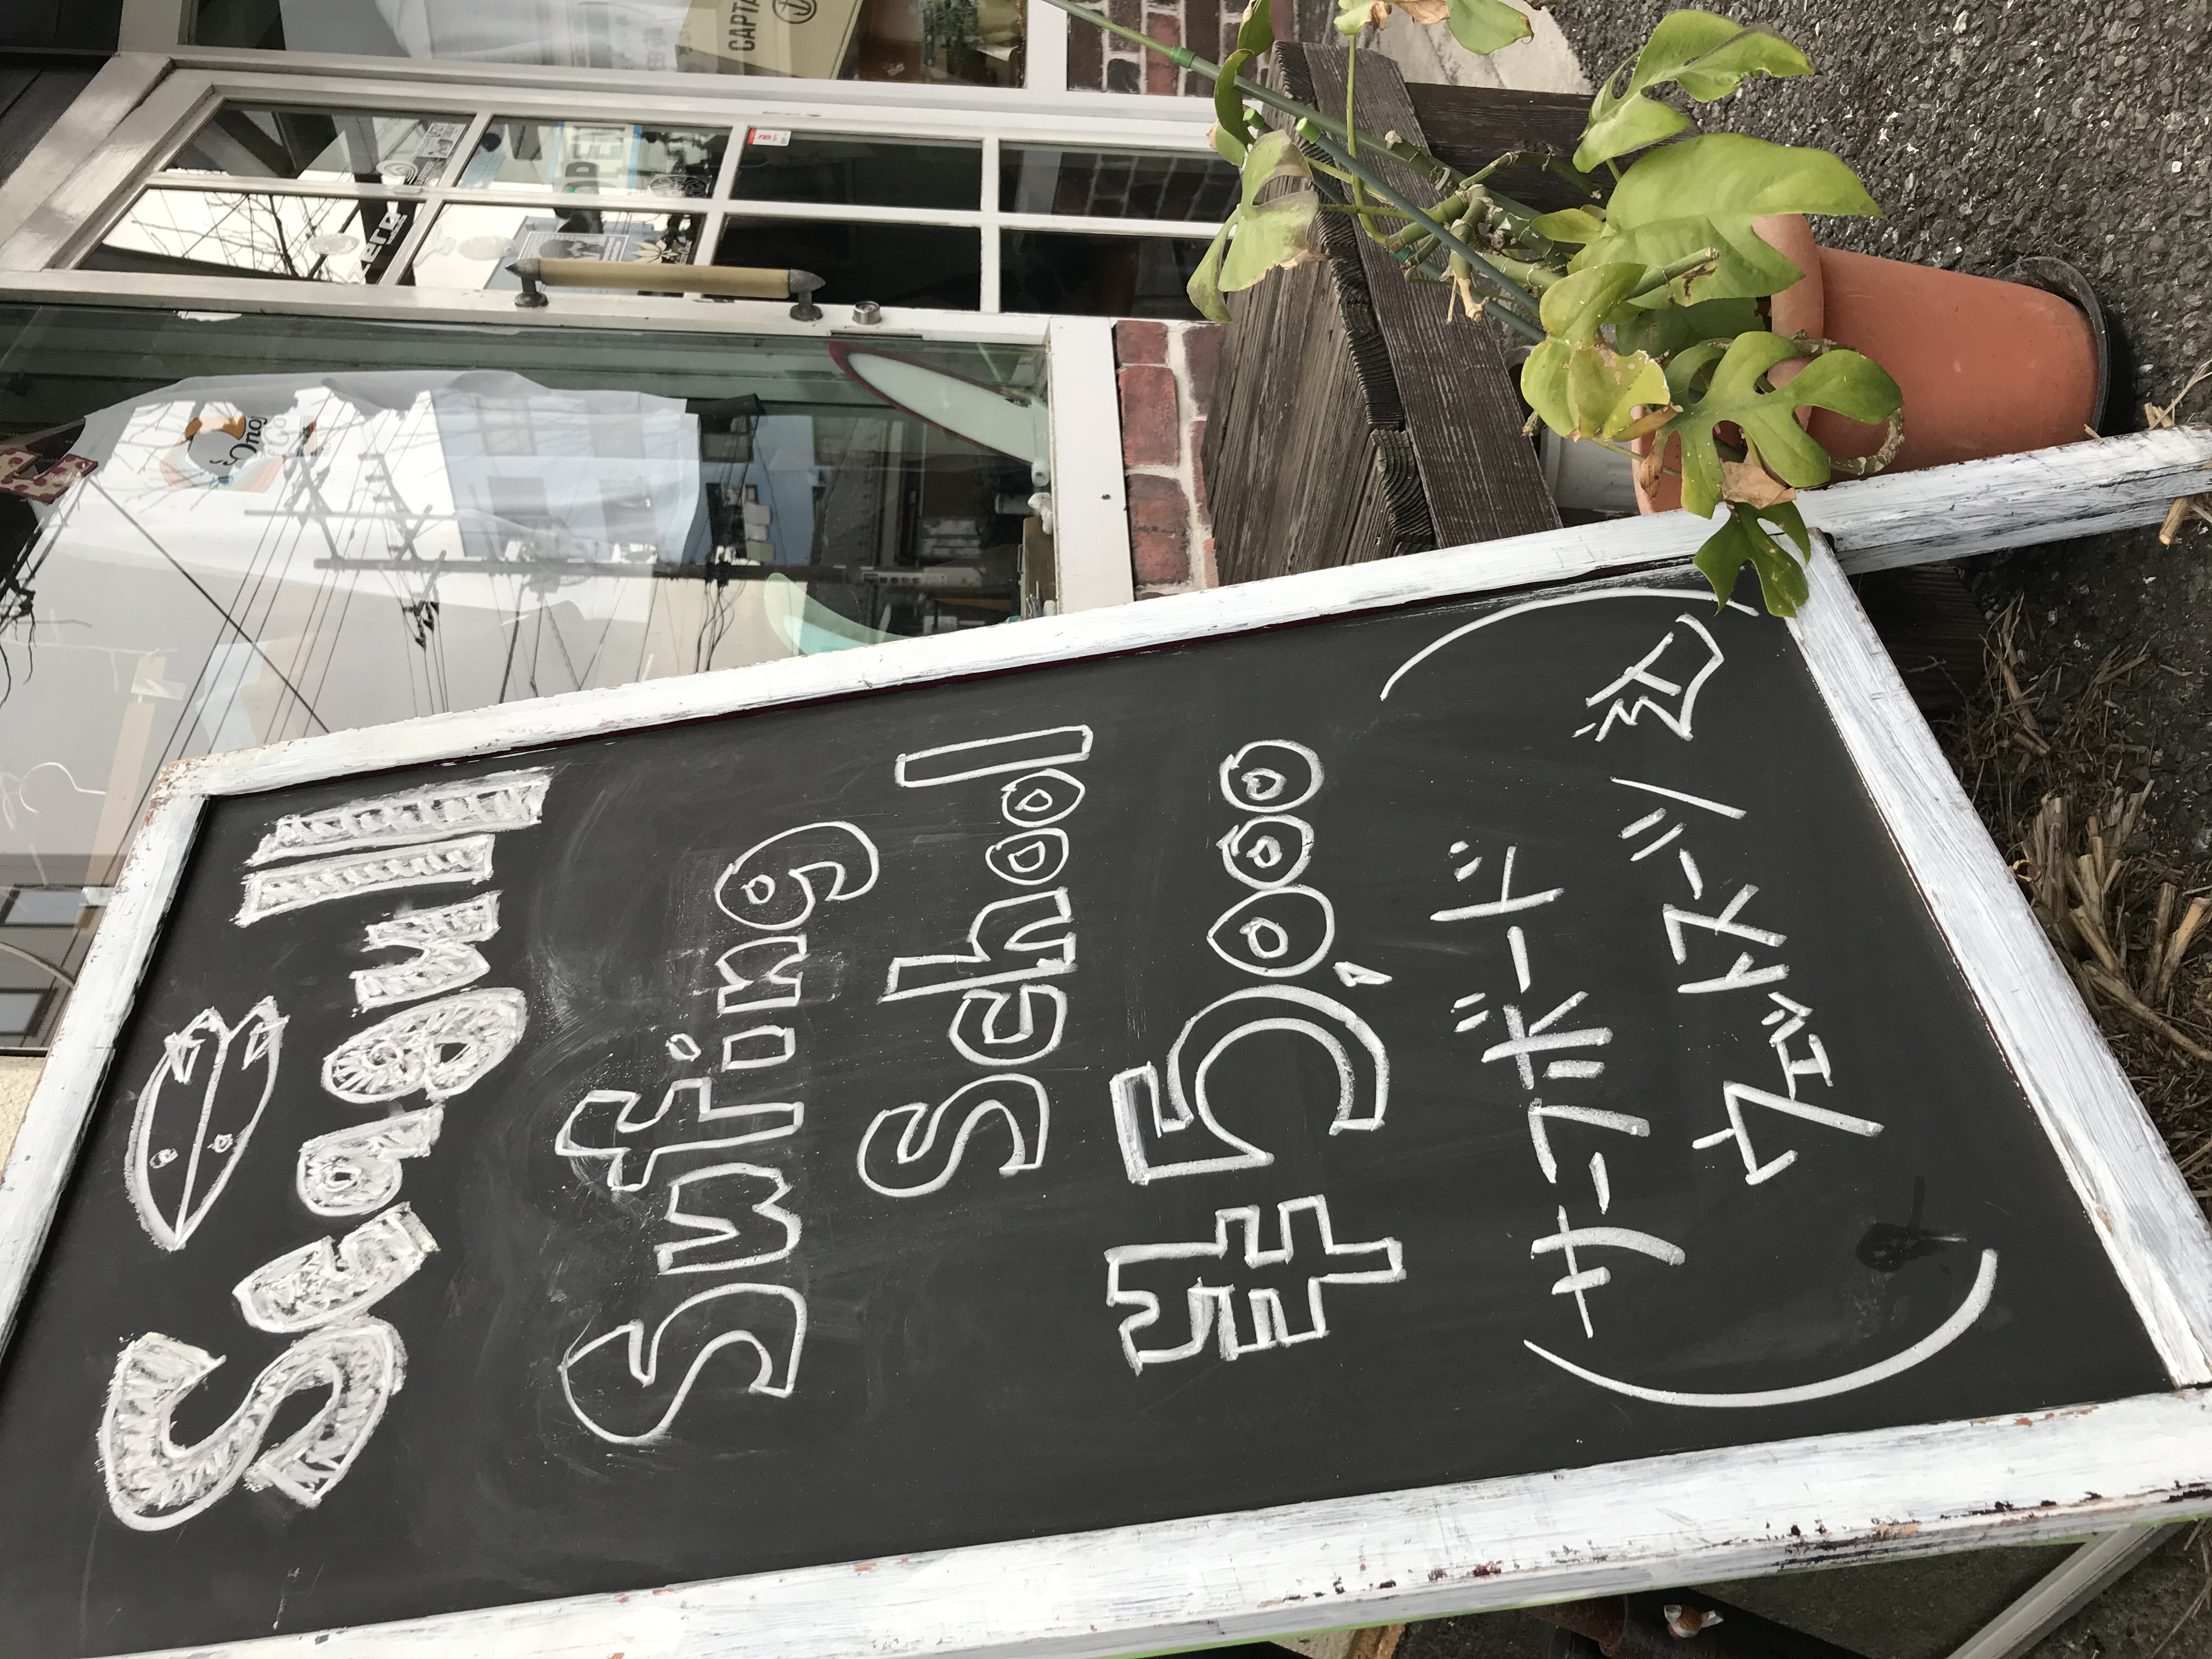 Seagull
Sufing
School
¥5,000
(サーフボード
ウェットスーツ込)
OPEN
zero
CAPTA